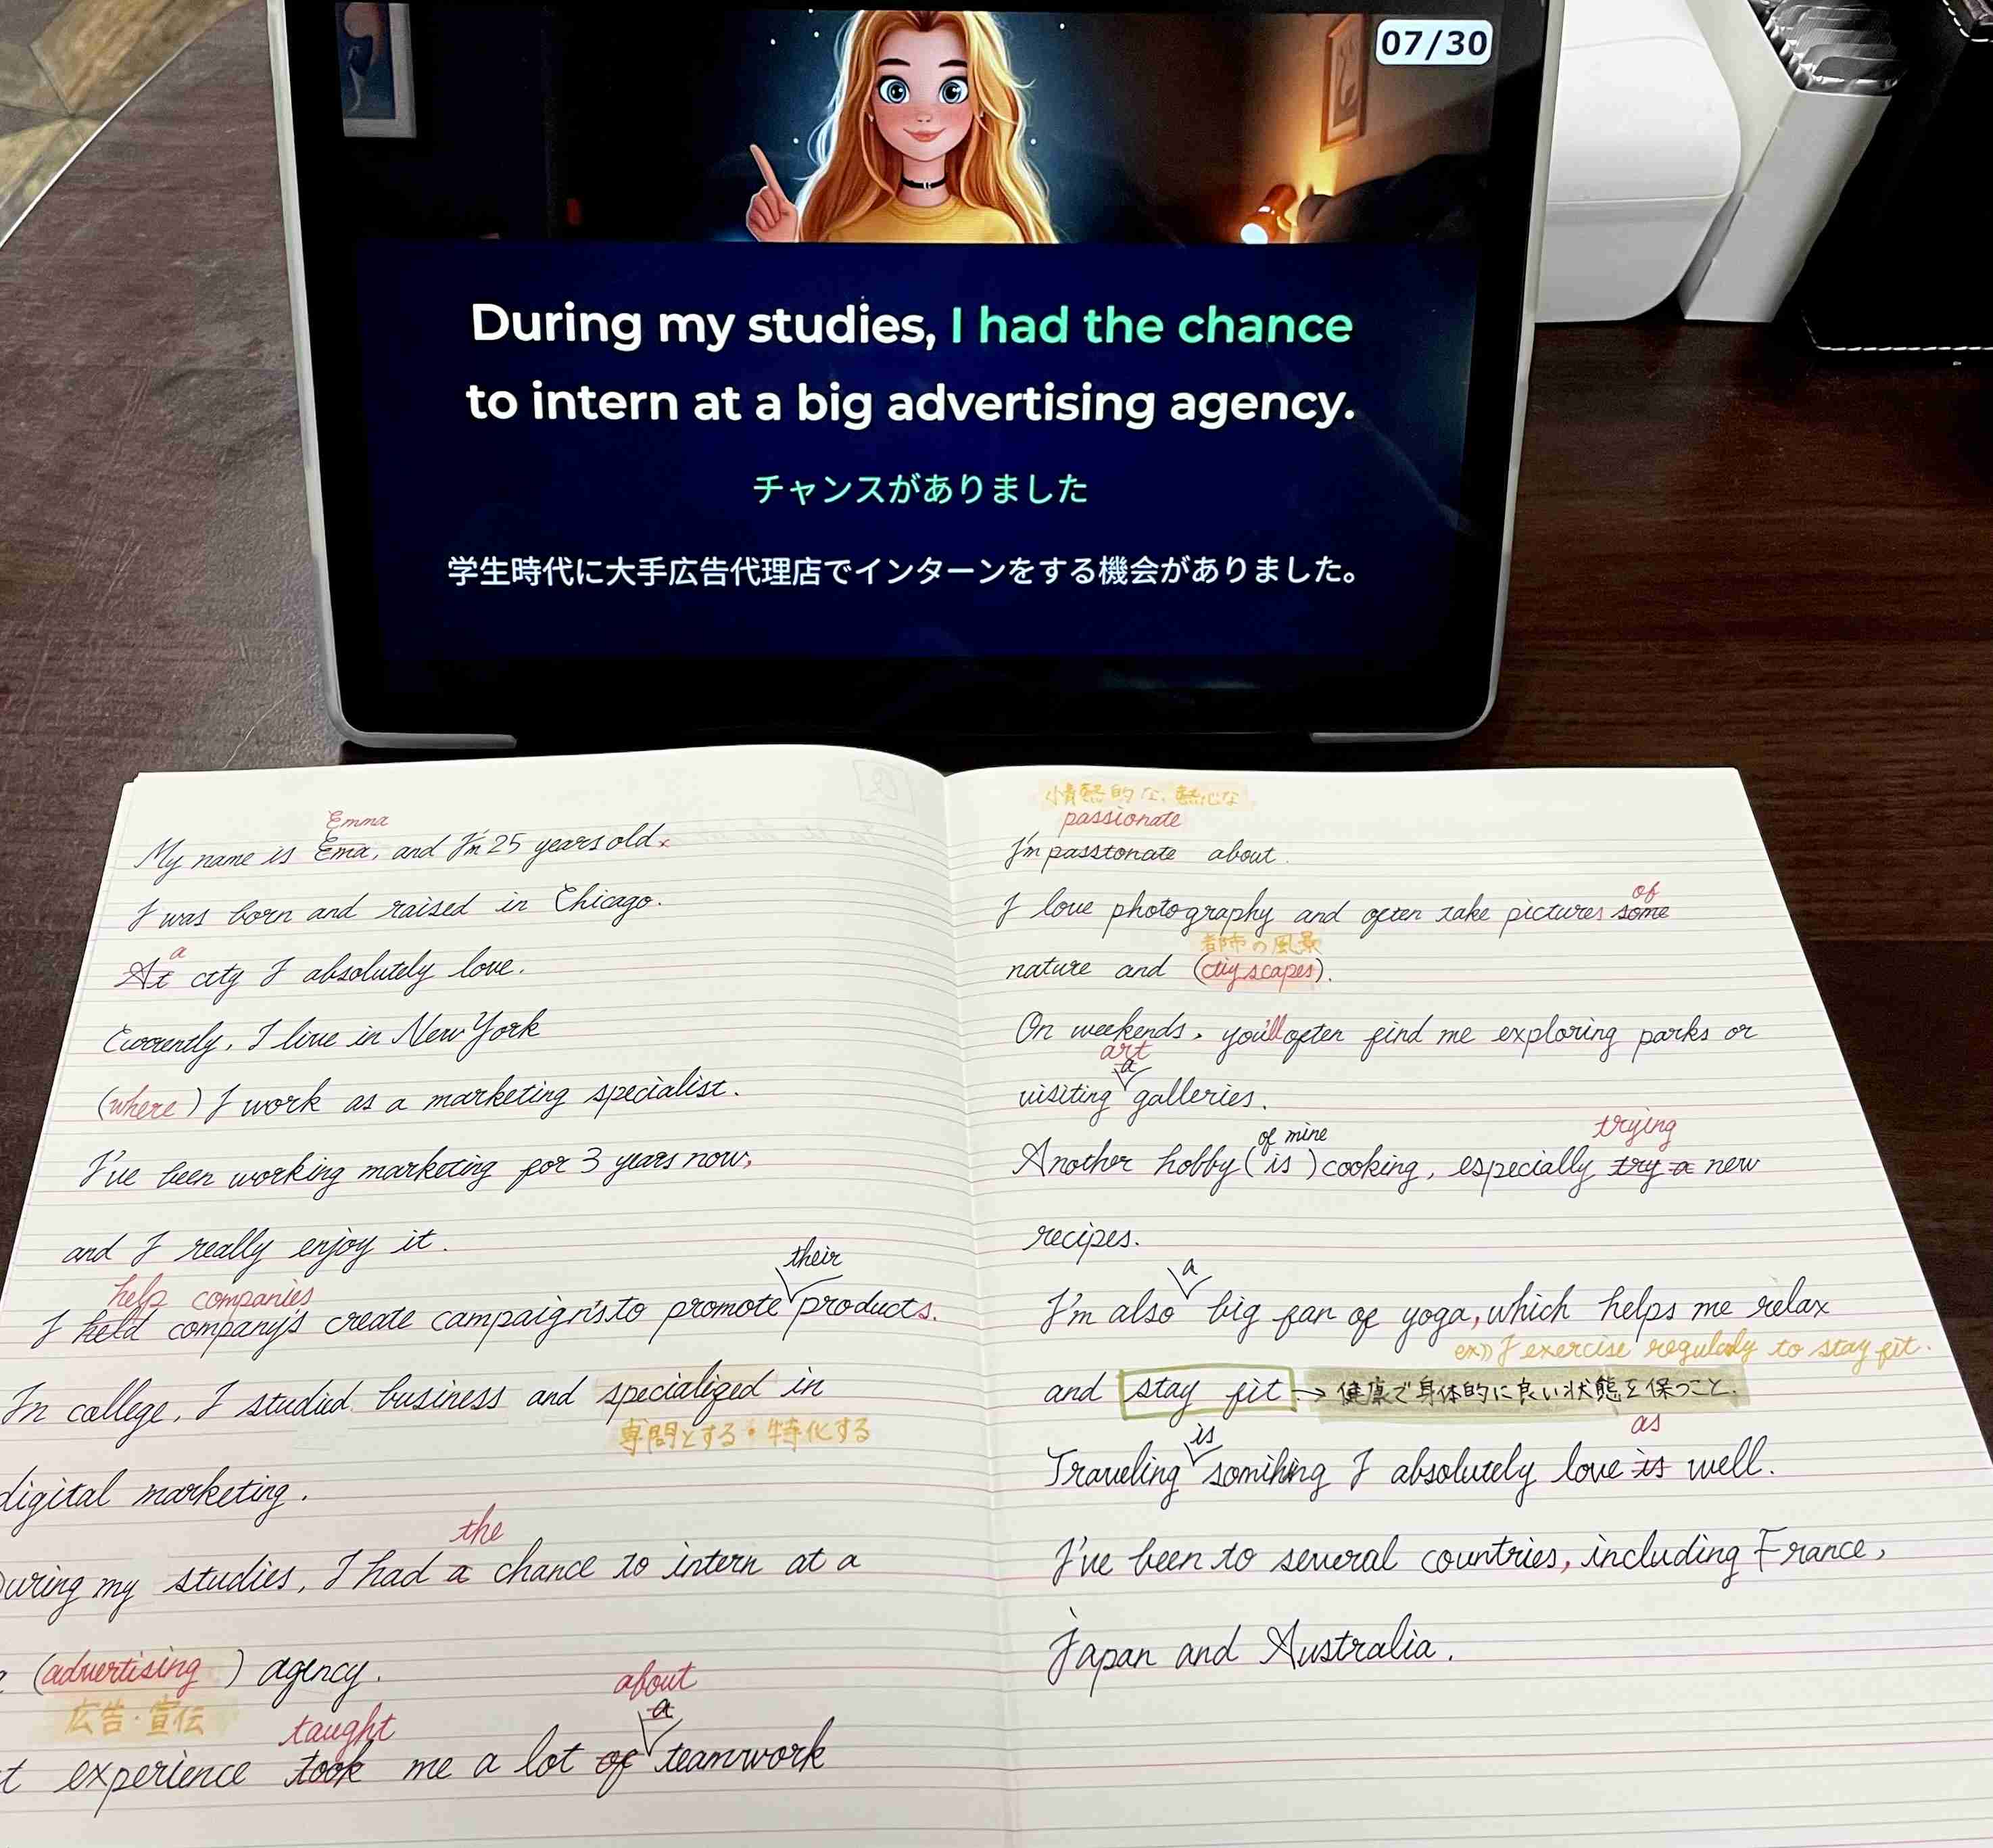 07/30
During my studies, I had the chance
to intern at a big advertising agency.
チャンスがありました
学生時代に大手広告代理店でインターンをする機会がありました。
Emma
My name is Ema, and I'm 25 years old.
I was born and raised in Chicago.
a
At city I absolutely love.
Currently, I live in New York
(where) I work as a marketing specialist.
I've been working marketing for 3 years now,
and I really enjoy it.
help companies
their
I held company's create campaign's to promote products.
In college, I studied business and specialized in
専門とする・特化する
digital marketing.
the
During my studies, I had a chance to intern at a
(advertising) agency.
広告・宣伝
taught
about
a
experience took me a lot of teamwork
情熱的な、熱心な
passionate
I'm passtonate about.
of
I love photography and often take pictures some
都市の風景
nature and (cityscapes).
On weekends, you'll often find me exploring parks or
art
a
visiting galleries.
of mine
trying
Another hobby (is) cooking, especially try a new
recipes.
a
I'm also big fan of yoga, which helps me relax
ex)) I exercise regularly to stay fit.
and stay fit → 健康で身体的に良い状態を保つこと.
is
as
Traveling somihing I absolutely love is well.
I've been to several countries, including France,
Japan and Australia.